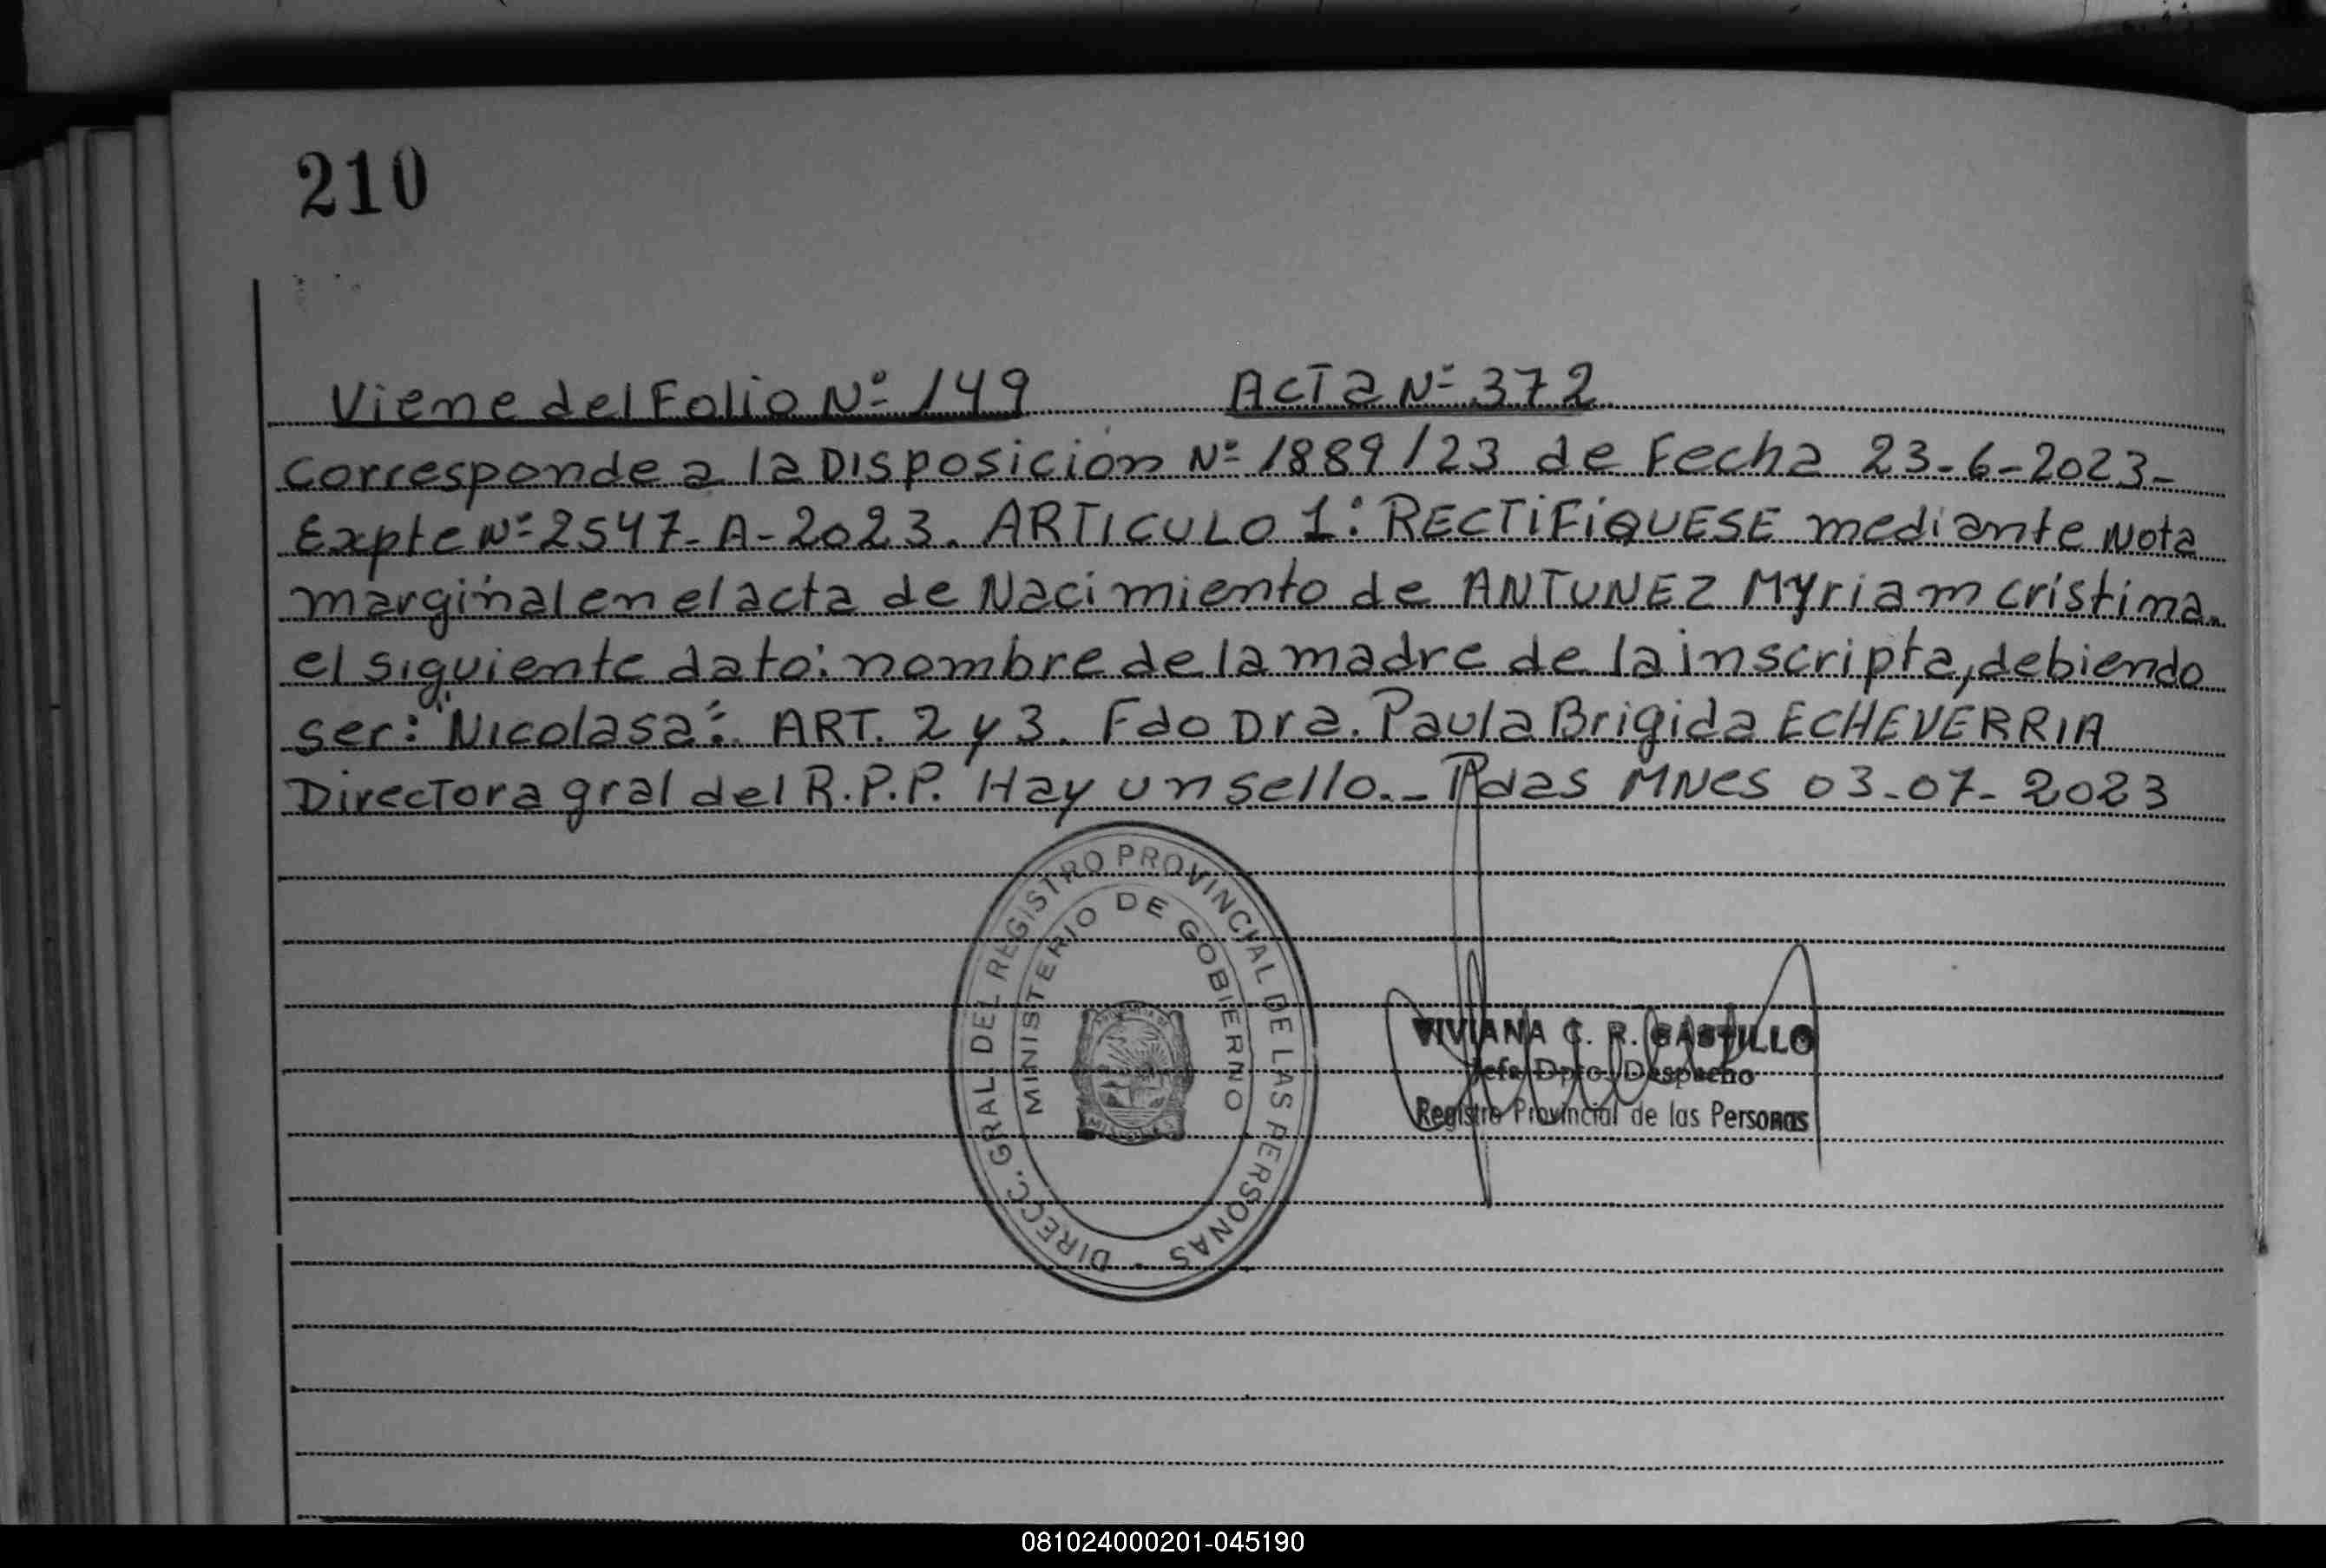 210
Viene del Folio Nº 149 Acta Nº 372
corresponde a la Disposición Nº 1889/23 de Fecha 23-6-2023-
Expte Nº 2547-A-2023. ARTICULO 1: RECTIFIQUESE mediante Nota
marginal en el acta de Nacimiento de ANTUNEZ Myriam cristina.
el siguiente dato: nombre de la madre de la inscripta, debiendo
ser: "Nicolasa". ART. 2 y 3. Fdo Dra. Paula Brigida ECHEVERRIA
Directora gral del R.P.P. Hay un sello._ Pdas MNes 03-07-2023
DIRECC. GRAL. DEL REGISTRO PROVINCIAL DE LAS PERSONAS
MINISTERIO DE GOBIERNO
VIVIANA C. R. CASTILLO
Jefa Dpto. Despacho
Registro Provincial de las Personas
081024000201-045190